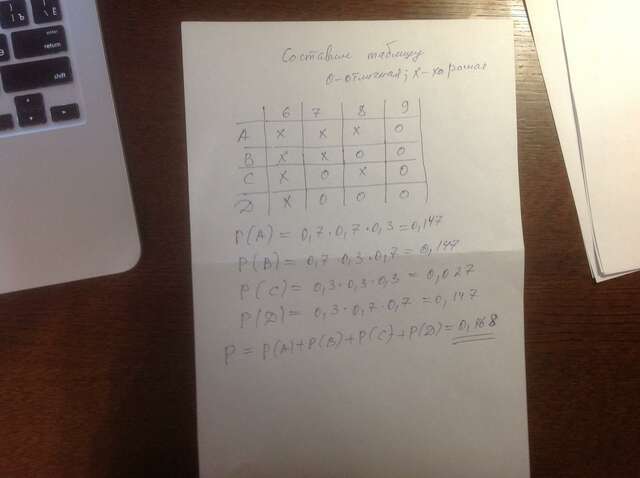 Составим таблицу
О-отличная; Х-хорошая
6 7 8 9
A X X X O
B X X O O
C X O X O
D X O O O
P(A) = 0,7·0,7·0,3 = 0,147
P(B) = 0,7·0,3·0,7 = 0,147
P(C) = 0,3·0,3·0,3 = 0,027
P(D) = 0,3·0,7·0,7 = 0,147
P = P(A)+P(B)+P(C)+P(D) = 0,468
enter
return
shift